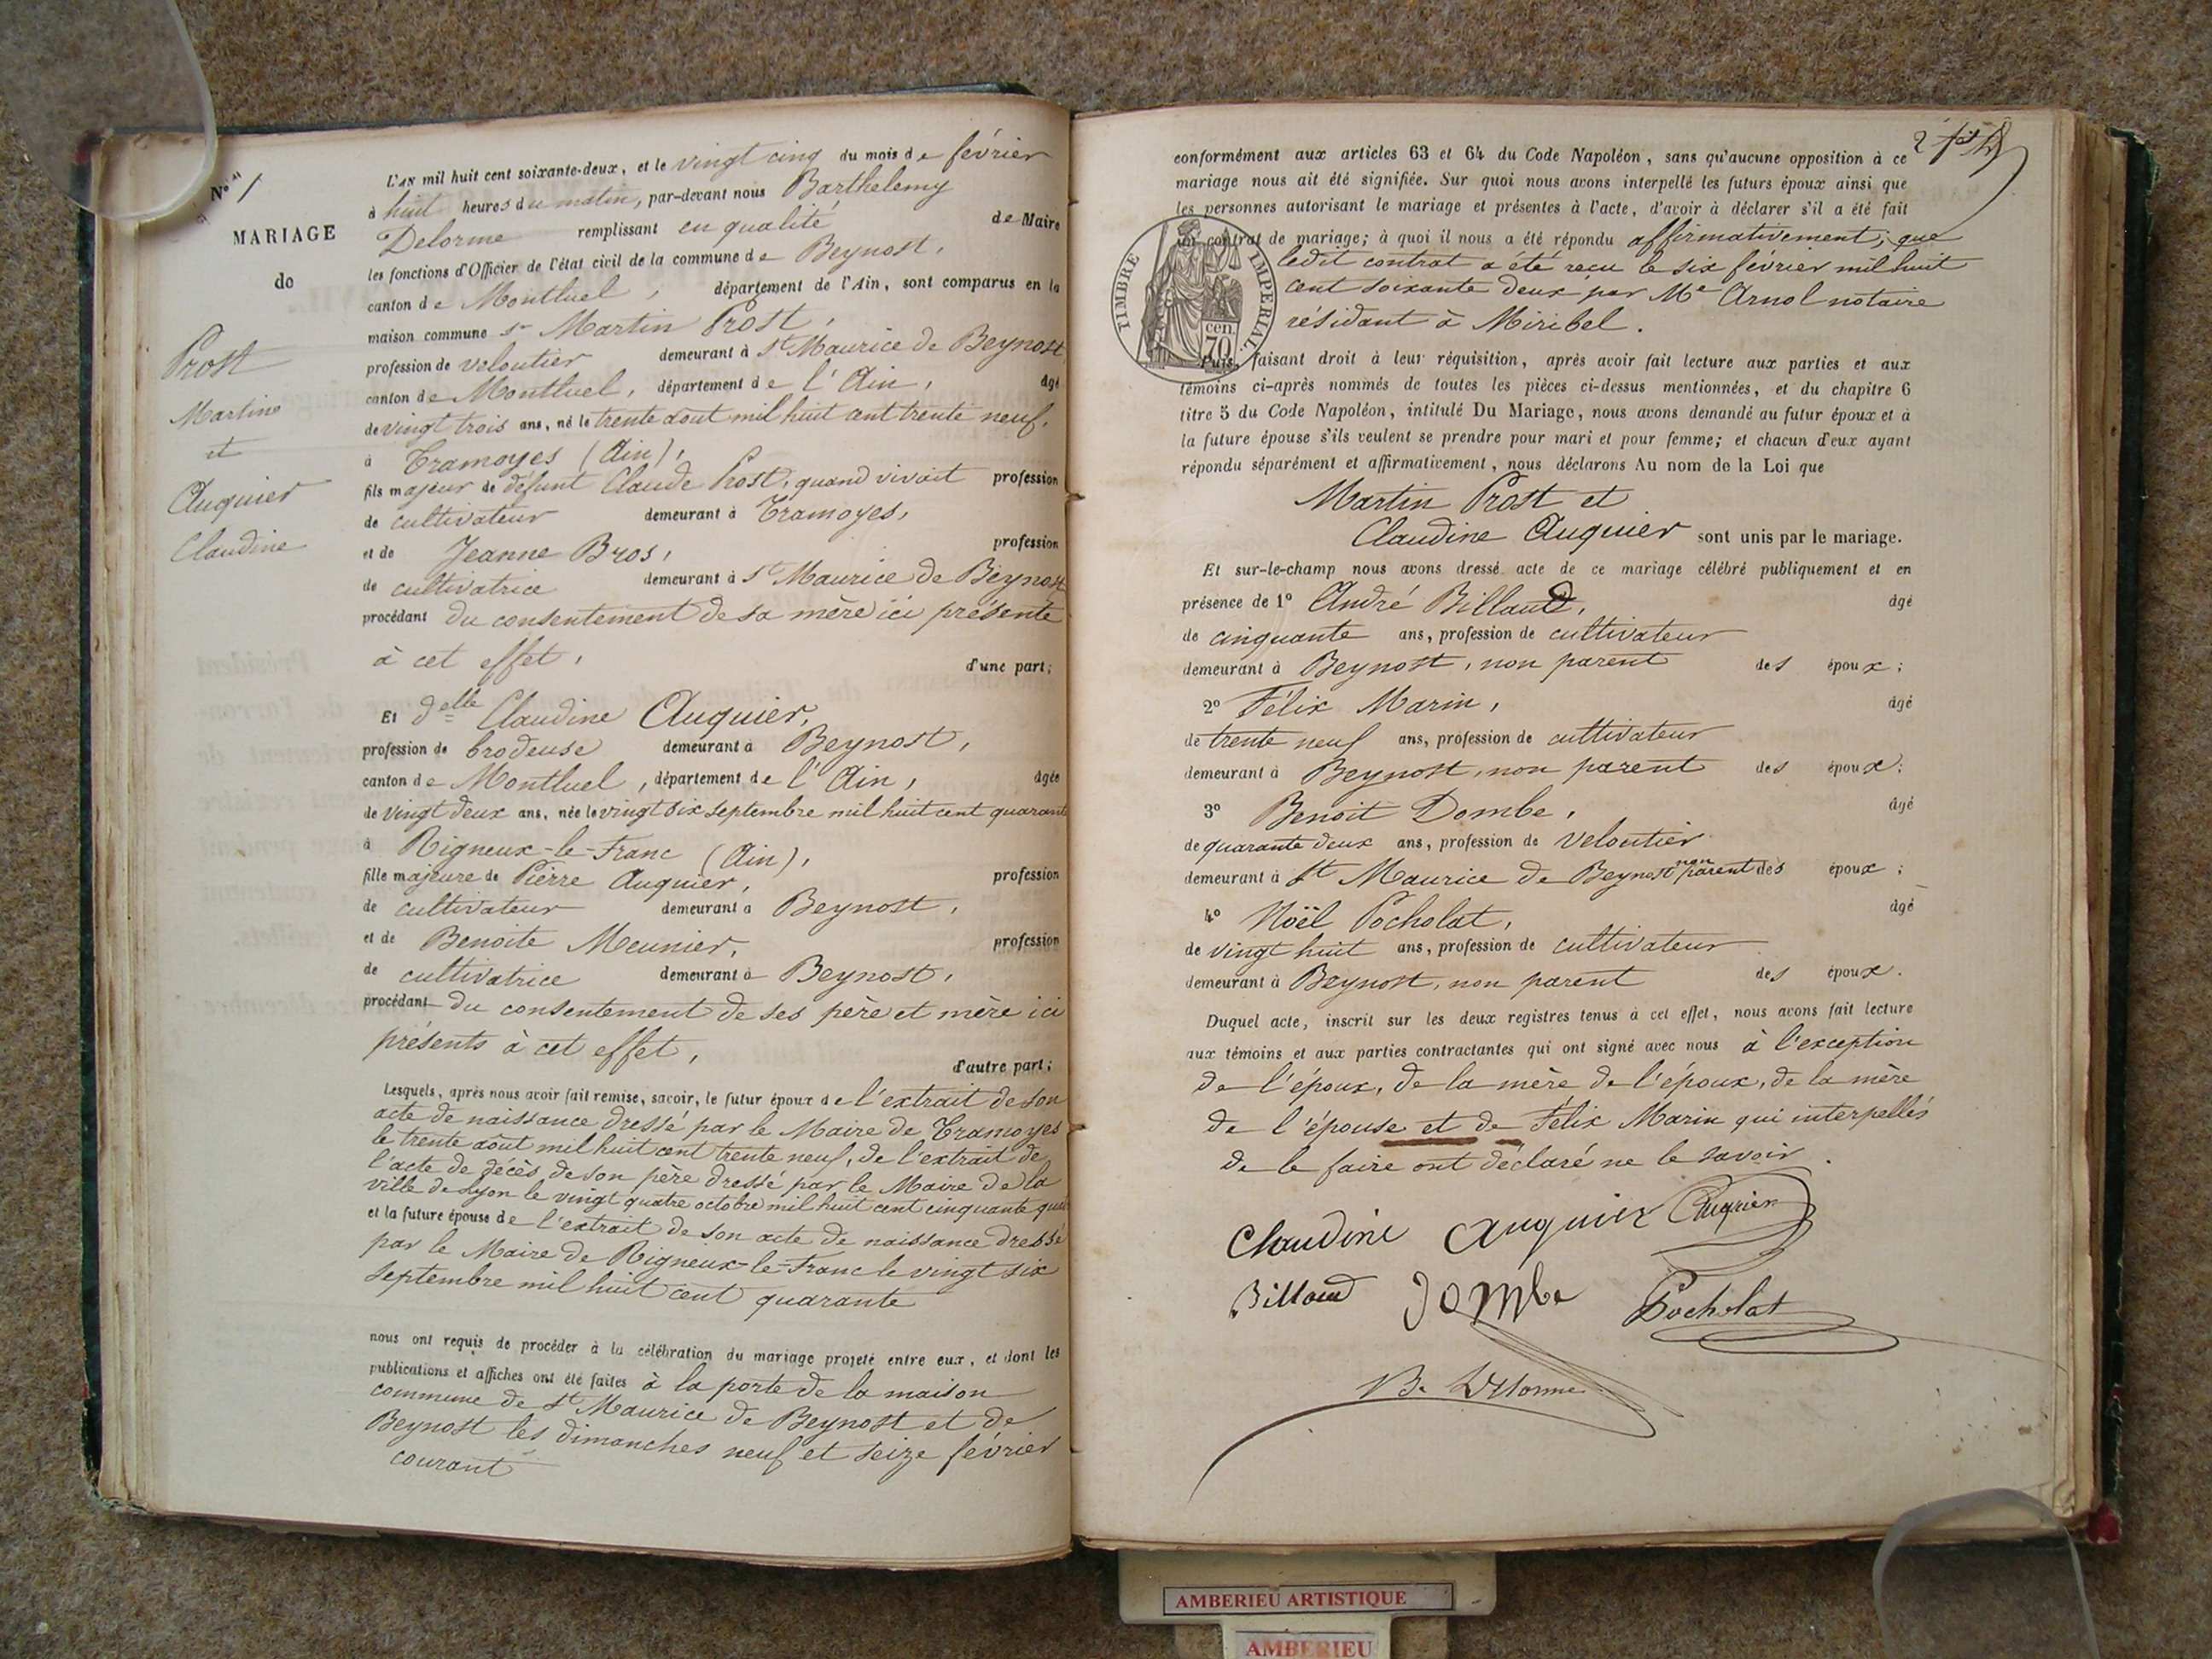 N° 1
MARIAGE
de
Prost
Martin
et
Auquier
Claudine
L'AN mil huit cent soixante-deux, et le vingt cinq du mois de février
à huit heures du matin, par-devant nous Barthelemy
Delorme remplissant en qualité de Maire
les fonctions d'Officier de l'état civil de la commune de Beynost,
canton de Montluel, département de l'Ain, sont comparus en la
maison commune sr Martin Prost,
profession de veloutier demeurant à St Maurice de Beynost
canton de Montluel, département de l'Ain, âgé
de vingt trois ans, né le trente aout mil huit cent trente neuf,
à Tramoyes (Ain),
fils majeur de défunt Claude Prost, quand vivait profession
de cultivateur demeurant à Tramoyes,
et de Jeanne Bros, profession
de cultivatrice demeurant à St Maurice de Beynost
procédant du consentement de sa mère ici présente
à cet effet, d'une part;
Et delle Claudine Auquier,
profession de brodeuse demeurant à Beynost,
canton de Montluel, département de l'Ain, âgée
de vingt deux ans, née le vingt six septembre mil huit cent quarante
à Rigneux-le-Franc (Ain),
fille majeure de Pierre Auquier, profession
de cultivateur demeurant à Beynost,
et de Benoite Meunier, profession
de cultivatrice demeurant à Beynost,
procédant du consentement de ses père et mère ici
présents à cet effet, d'autre part;
Lesquels, après nous avoir fait remise, savoir, le futur époux de l'extrait de son
acte de naissance dressé par le Maire de Tramoyes
le trente aout mil huit cent trente neuf, de l'extrait de
l'acte de décès de son père dressé par le Maire de la
ville de Lyon le vingt quatre octobre mil huit cent cinquante
et la future épouse de l'extrait de son acte de naissance dressé
par le Maire de Rigneux-le-Franc le vingt six
septembre mil huit cent quarante
nous ont requis de procéder à la célébration du mariage projeté entre eux, et dont les
publications et affiches ont été faites à la porte de la maison
commune de St Maurice de Beynost et de
Beynost les dimanches neuf et seize février
courant
2
conformément aux articles 63 et 64 du Code Napoléon, sans qu'aucune opposition à ce
mariage nous ait été signifiée. Sur quoi nous avons interpellé les futurs époux ainsi que
les personnes autorisant le mariage et présentes à l'acte, d'avoir à déclarer s'il a été fait
un contrat de mariage; à quoi il nous a été répondu affirmativement; que
ledit contrat a été reçu le six février mil huit
cent soixante deux par Me Arnol notaire
résidant à Miribel.
TIMBRE IMPERIAL.
70 cen.
Puis, faisant droit à leur réquisition, après avoir fait lecture aux parties et aux
témoins ci-après nommés de toutes les pièces ci-dessus mentionnées, et du chapitre 6
titre 5 du Code Napoléon, intitulé Du Mariage, nous avons demandé au futur époux et à
la future épouse s'ils veulent se prendre pour mari et pour femme; et chacun d'eux ayant
répondu séparément et affirmativement, nous déclarons Au nom de la Loi que
Martin Prost et
Claudine Auquier sont unis par le mariage.
Et sur-le-champ nous avons dressé acte de ce mariage célébré publiquement et en
présence de 1° André Billaud, âgé
de cinquante ans, profession de cultivateur
demeurant à Beynost, non parent des époux;
2° Félix Marin, âgé
de trente neuf ans, profession de cultivateur
demeurant à Beynost, non parent des époux;
3° Benoit Dombe, âgé
de quarante deux ans, profession de veloutier
demeurant à St Maurice de Beynost non parent des époux;
4° Noël Pocholat, âgé
de vingt huit ans, profession de cultivateur
demeurant à Beynost, non parent des époux.
Duquel acte, inscrit sur les deux registres tenus à cet effet, nous avons fait lecture
aux témoins et aux parties contractantes qui ont signé avec nous à l'exception
de l'époux, de la mère de l'époux, de la mère
de l'épouse et de Félix Marin qui interpellés
de le faire ont déclaré ne le savoir.
Claudine auquier Auquier
Billaud Dombe Pocholat
B. Delorme
AMBERIEU ARTISTIQUE
AMBERIEU